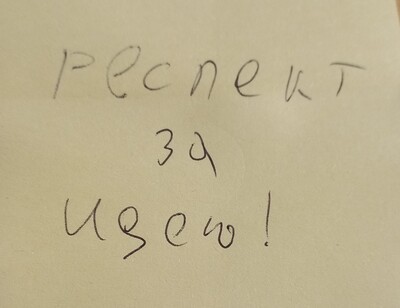 респект
за
идею!